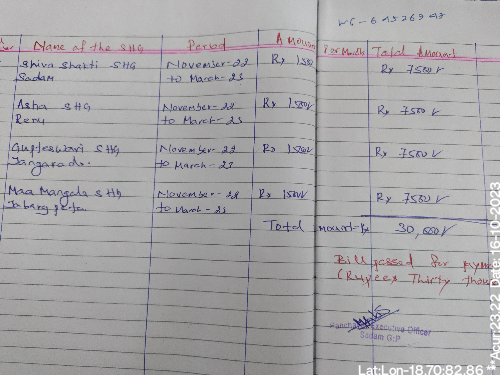 Name of the SHG Period Amoun Per Month Total Amount
Shiva Shakti SHG November-22 Rs 1500 Rs 7500/
Sadam to March-23
Asha SHG November-22 Rs 1500/ Rs 7500/
Renu to March-23
Gupteswari SHG November-22 Rs 1500/ Rs 7500/
to March-23
Maa Mangala SHG November-22 Rs 1500/ Rs 7500/
to March-23
Total mount-Rs 30,000/
Bill passed for pyme
(Rupees Thirty thou
Panchayat Executive Officer
Sadam G.P
Lat:Lon-18.70:82.86
**Acur:23.22, Date:16-10-2023